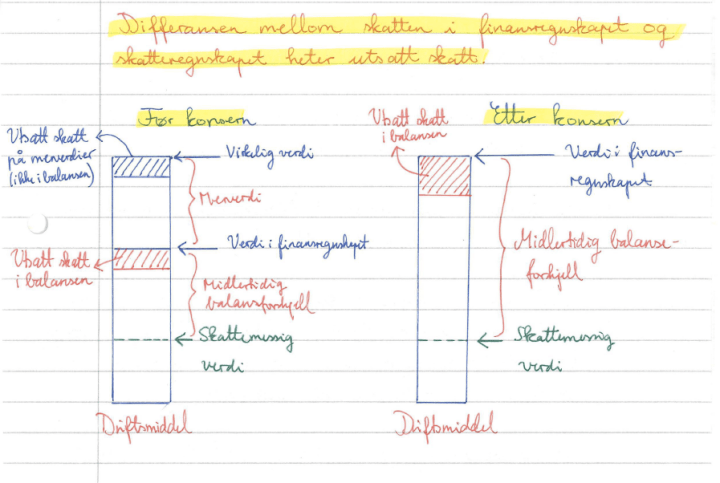 Differansen mellom skatten i finansregnskapet og
skatteregnskapet heter utsatt skatt.
Før konsern
Utsatt skatt
på merverdier
(ikke i balansen)
Virkelig verdi
Merverdi
Verdi i finansregnskapet
Utsatt skatt
i balansen
Midlertidig
balanseforskjell
Skattemessig
verdi
Driftsmiddel
Etter konsern
Utsatt skatt
i balansen
Verdi i finans-
regnskapet
Midlertidig balanse-
forskjell
Skattemessig
verdi
Driftsmiddel